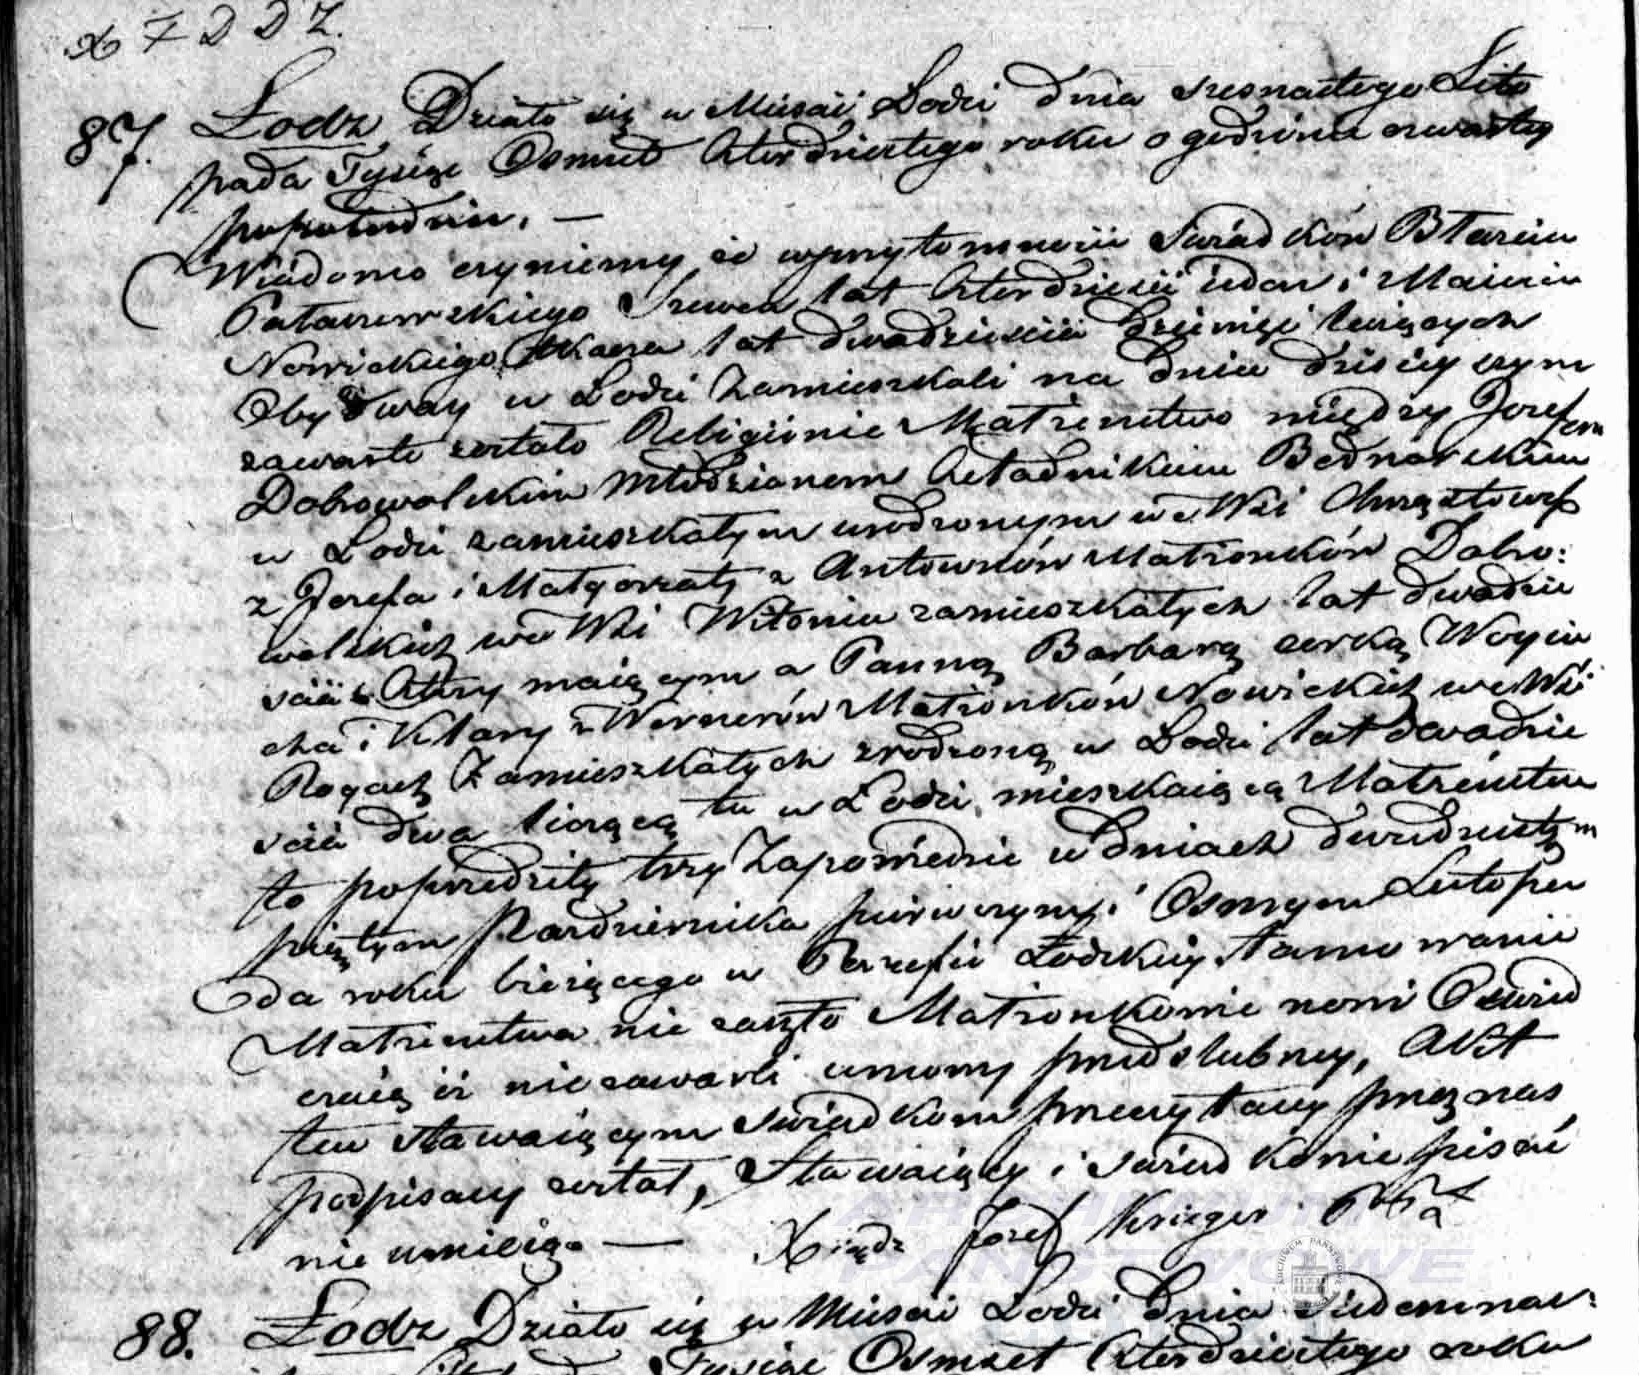 X F D D Z.
87. Łodz Działo się w Mieście Łodzi dnia szesnastego Listo
pada Tysiąc Osmset Czterdziestego roku o godzinie czwartey
popołudniu. —
Wiadomo czyniemy że wprzytomności Swiadków Błażeia
Szewca lat Czterdzieści ieden i Macieia
Nowickiego Tkacza lat dwadzieścia dziewięć liczących
Obydway w Łodzi Zamieszkali na dniu dzisieyszym
zawarte zostało Religiinie Małżeństwo między Jozefem
Dobrowolskim Młodzianem Czeladnikiem Bednarskim
w Łodzi zamieszkałym urodzonym we Wsi
z Jozefa i Małgorzaty z Antownów Małżonków Dobro:
wolskich we Wsi Witonia zamieszkałych lat dwadzie
ścia Cztery maiącym a Panną Barbarą corką Woycie
cha i Klary z Wernerów Małżonków Nowickich we Wsi
Rogach Zamieszkałych zrodzoną w Łodzi lat dwadzie
ścia dwa liczącą tu w Łodzi mieszkaiącą Małżeństwo
to poprzedziły trzy Zapowiedzie w dniach dwudziestym
piątym Pazdziernika pierwszym i Osmym Listopa
da roku bieżącego w Parafii Łodzkiey tamowanie
Małżeństwa nie zaszło Małżonkowie nowi Oświad
czaią iż nie zawarli umowy przedslubney, Akt
ten stawaiącym swiadkom przeczytany przez nas
podpisany został, Stawaiący i swiadkowie pisać
nie umieią. — Xiądz Jozef Krieger
88. Łodz Działo się w Mieście Łodzi dnia Siedemnas:
Tysiąc Osmset Czterdziestego roku
ARCHIWUM
PAŃSTWOWE
ARCHIWUM PAŃSTWOWE